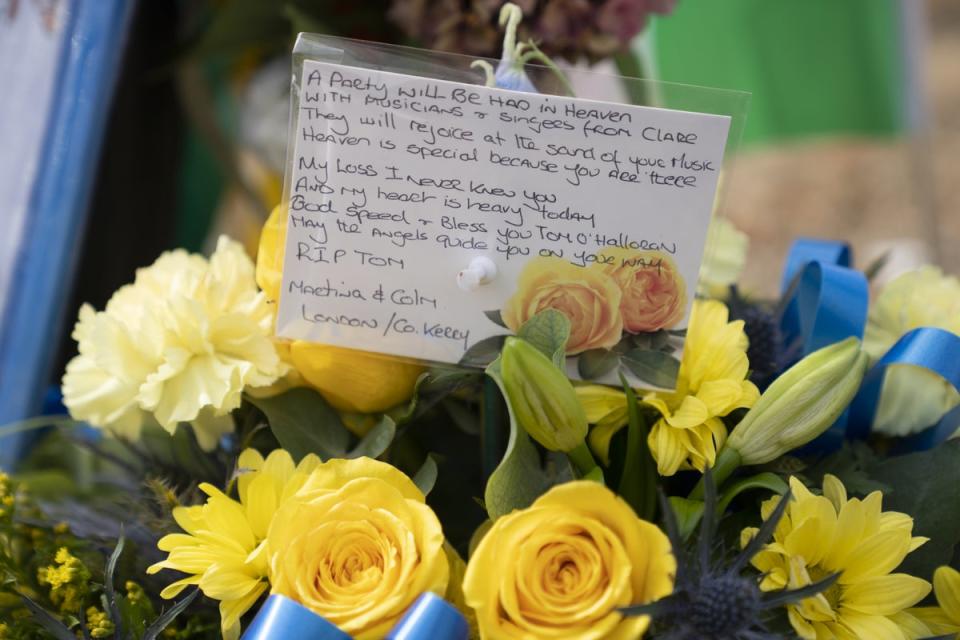 A Party will Be Had in Heaven
with Musicians & Singers from Clare
They will rejoice at the sound of your Music
Heaven is special because you are there
My Loss I never knew you
And my heart is heavy today
God Speed & Bless you Tom O'Halloran
May the Angels guide you on your way
R.I.P Tom
Martina & Colm
London/Co. Kerry